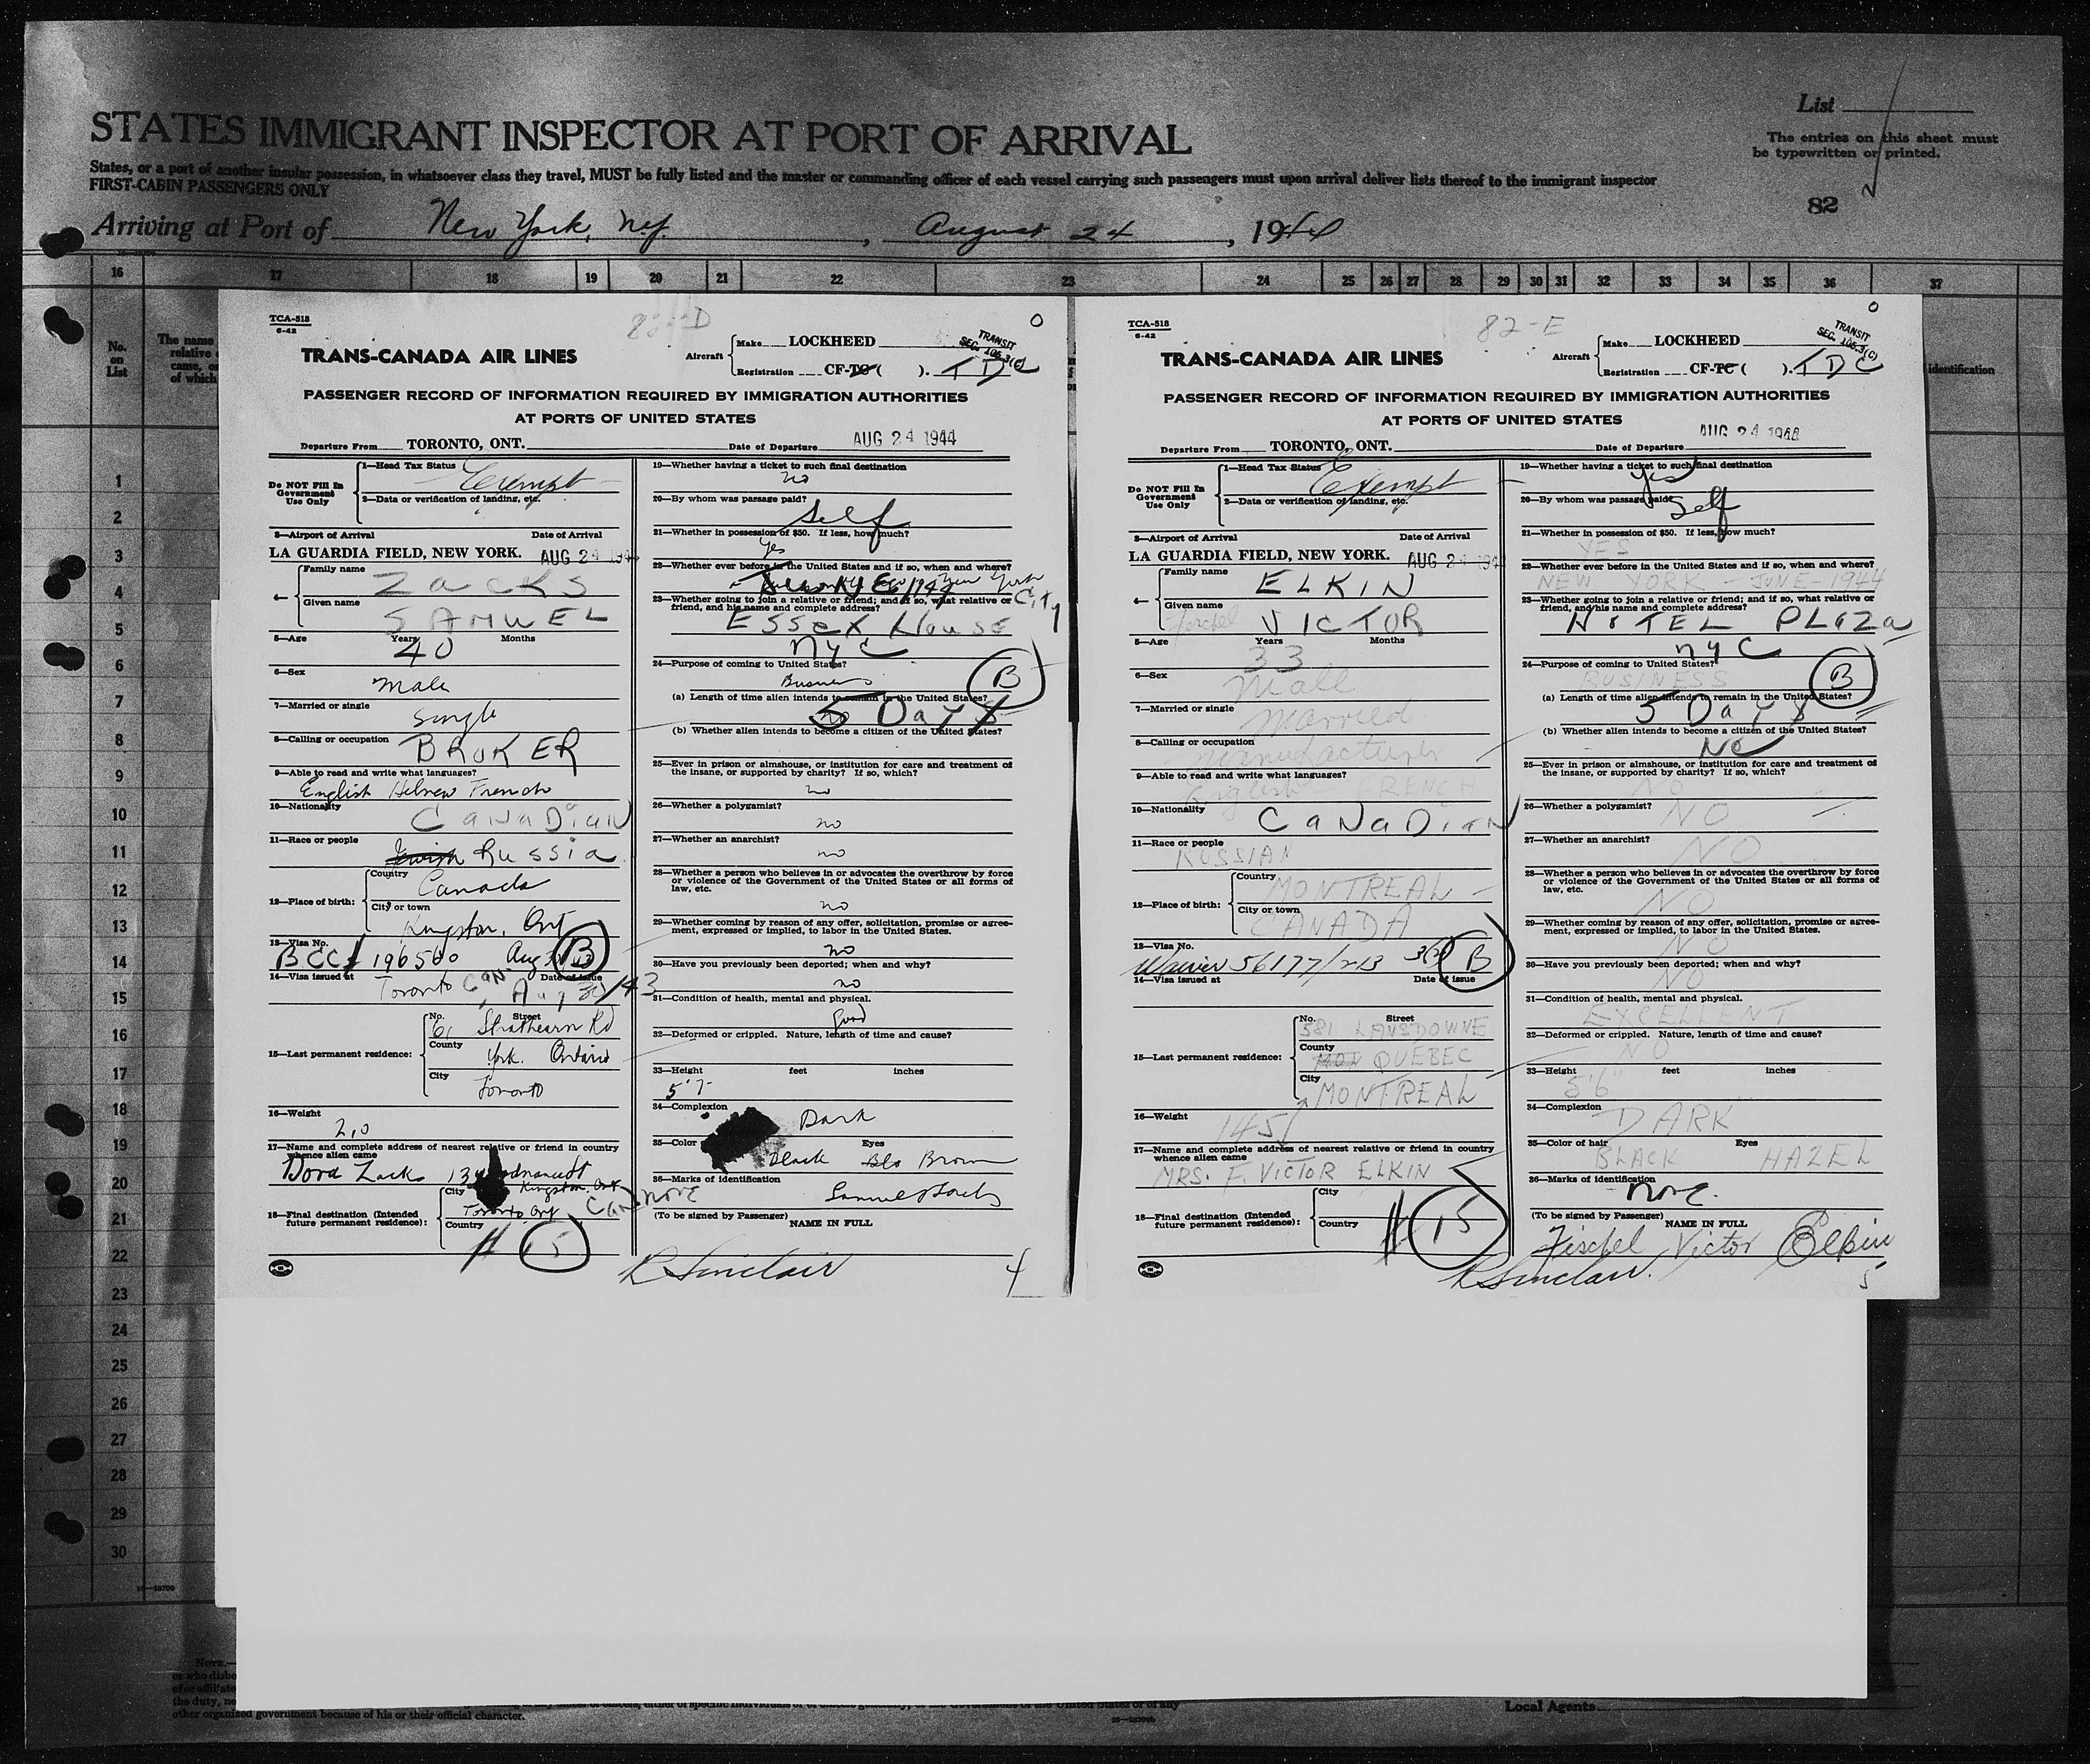 List
The entries on this sheet must
be typewritten or printed.
82
STATES IMMIGRANT INSPECTOR AT PORT OF ARRIVAL
States, or a port of another insular possession, in whatsoever class they travel, MUST be fully listed and the master or commanding officer of each vessel carrying such passengers must upon arrival deliver lists thereof to the immigrant inspector
FIRST-CABIN PASSENGERS ONLY
Arriving at Port of New York, N.Y. , August 24 , 1944
16 17 18 19 20 21 22 23 24 25 26 27 28 29 30 31 32 33 34 35 36 37
No.
on
List
The name
relative
came, or
of which
identification
1
2
3
4
5
6
7
8
9
10
11
12
13
14
15
16
17
18
19
20
21
22
23
24
25
26
27
28
29
30
TCA-518
6-42
82-D
TRANS-CANADA AIR LINES
Aircraft
Make LOCKHEED
Registration CF-TC ( ). TDC
TRANSIT
SEC. 105.3(C)
PASSENGER RECORD OF INFORMATION REQUIRED BY IMMIGRATION AUTHORITIES
AT PORTS OF UNITED STATES
Departure From TORONTO, ONT. Date of Departure AUG 24 1944
Do NOT Fill In
Government
Use Only
1—Head Tax Status Exempt
2—Data or verification of landing, etc.
3—Airport of Arrival Date of Arrival
LA GUARDIA FIELD, NEW YORK. AUG 24 194
4— Family name ZACKS
Given name SAMUEL
5—Age Years Months
40
6—Sex
Male
7—Married or single
Single
8—Calling or occupation BROKER
9—Able to read and write what languages?
English Hebrew French
10—Nationality
CANADIAN
11—Race or people
Jewish Russia
12—Place of birth:
Country
Canada
City or town
Kingston, Ont
13—Visa No.
BCC# 196500 Aug B
14—Visa issued at Date of issue
Toronto Can. Aug 30/43
15—Last permanent residence:
No. Street
61 Strathearn Rd
County
York. Ontario
City
Toronto
16—Weight
210
17—Name and complete address of nearest relative or friend in country
whence alien came
Dora Zacks
Kingston, Ont
18—Final destination (Intended
future permanent residence):
City
Toronto, Ont Can.
Country
# 15
19—Whether having a ticket to such final destination
no
20—By whom was passage paid?
Self
21—Whether in possession of $50. If less, how much?
Yes
22—Whether ever before in the United States and if so, when and where?
New York City
23—Whether going to join a relative or friend; and if so, what relative or
friend, and his name and complete address?
Essex House
NYC
24—Purpose of coming to United States?
Business B
(a) Length of time alien intends to remain in the United States?
5 Days
(b) Whether alien intends to become a citizen of the United States?
25—Ever in prison or almshouse, or institution for care and treatment of
the insane, or supported by charity? If so, which?
no
26—Whether a polygamist?
no
27—Whether an anarchist?
no
28—Whether a person who believes in or advocates the overthrow by force
or violence of the Government of the United States or all forms of
law, etc.
no
29—Whether coming by reason of any offer, solicitation, promise or agree-
ment, expressed or implied, to labor in the United States.
no
30—Have you previously been deported; when and why?
no
31—Condition of health, mental and physical.
good
32—Deformed or crippled. Nature, length of time and cause?
33—Height feet inches
5'7
34—Complexion
Dark
35—Color Eyes
Black Blo Brown
36—Marks of identification
none
(To be signed by Passenger) NAME IN FULL
R Sinclair
4
TCA-518
6-42
82-E
TRANS-CANADA AIR LINES
Aircraft
Make LOCKHEED
Registration CF-TC ( ). TDC
TRANSIT
SEC. 105.3(C)
PASSENGER RECORD OF INFORMATION REQUIRED BY IMMIGRATION AUTHORITIES
AT PORTS OF UNITED STATES
Departure From TORONTO, ONT. Date of Departure AUG 24 1944
Do NOT Fill In
Government
Use Only
1—Head Tax Status Exempt
2—Data or verification of landing, etc.
3—Airport of Arrival Date of Arrival
LA GUARDIA FIELD, NEW YORK. AUG 24 194
4— Family name ELKIN
Given name VICTOR
5—Age Years Months
33
6—Sex
Male
7—Married or single
Married
8—Calling or occupation
Manufacturer
9—Able to read and write what languages?
English FRENCH
10—Nationality
CANADIAN
11—Race or people
RUSSIAN
12—Place of birth:
Country
MONTREAL
City or town
CANADA
13—Visa No.
Waiver 56177/213 B
14—Visa issued at Date of issue
15—Last permanent residence:
No. Street
581 LANSDOWNE
County
QUEBEC
City
MONTREAL
16—Weight
145
17—Name and complete address of nearest relative or friend in country
whence alien came
MRS. F. VICTOR ELKIN
18—Final destination (Intended
future permanent residence):
City
Country
# 15
19—Whether having a ticket to such final destination
yes
20—By whom was passage paid?
Self
21—Whether in possession of $50. If less, how much?
YES
22—Whether ever before in the United States and if so, when and where?
NEW YORK - JUNE-1944
23—Whether going to join a relative or friend; and if so, what relative or
friend, and his name and complete address?
HOTEL PLAZA
NYC
24—Purpose of coming to United States?
BUSINESS B
(a) Length of time alien intends to remain in the United States?
5 Days
(b) Whether alien intends to become a citizen of the United States?
No
25—Ever in prison or almshouse, or institution for care and treatment of
the insane, or supported by charity? If so, which?
NO
26—Whether a polygamist?
NO
27—Whether an anarchist?
NO
28—Whether a person who believes in or advocates the overthrow by force
or violence of the Government of the United States or all forms of
law, etc.
NO
29—Whether coming by reason of any offer, solicitation, promise or agree-
ment, expressed or implied, to labor in the United States.
NO
30—Have you previously been deported; when and why?
NO
31—Condition of health, mental and physical.
EXCELLENT
32—Deformed or crippled. Nature, length of time and cause?
NO
33—Height feet inches
5'6"
34—Complexion
DARK
35—Color of hair Eyes
BLACK HAZEL
36—Marks of identification
none.
(To be signed by Passenger) NAME IN FULL
Fischel Victor Elkin
R Sinclair.
5
Note.—
or who
of or
the duty, ne
other organized government because of his or their official character.
Local Agents